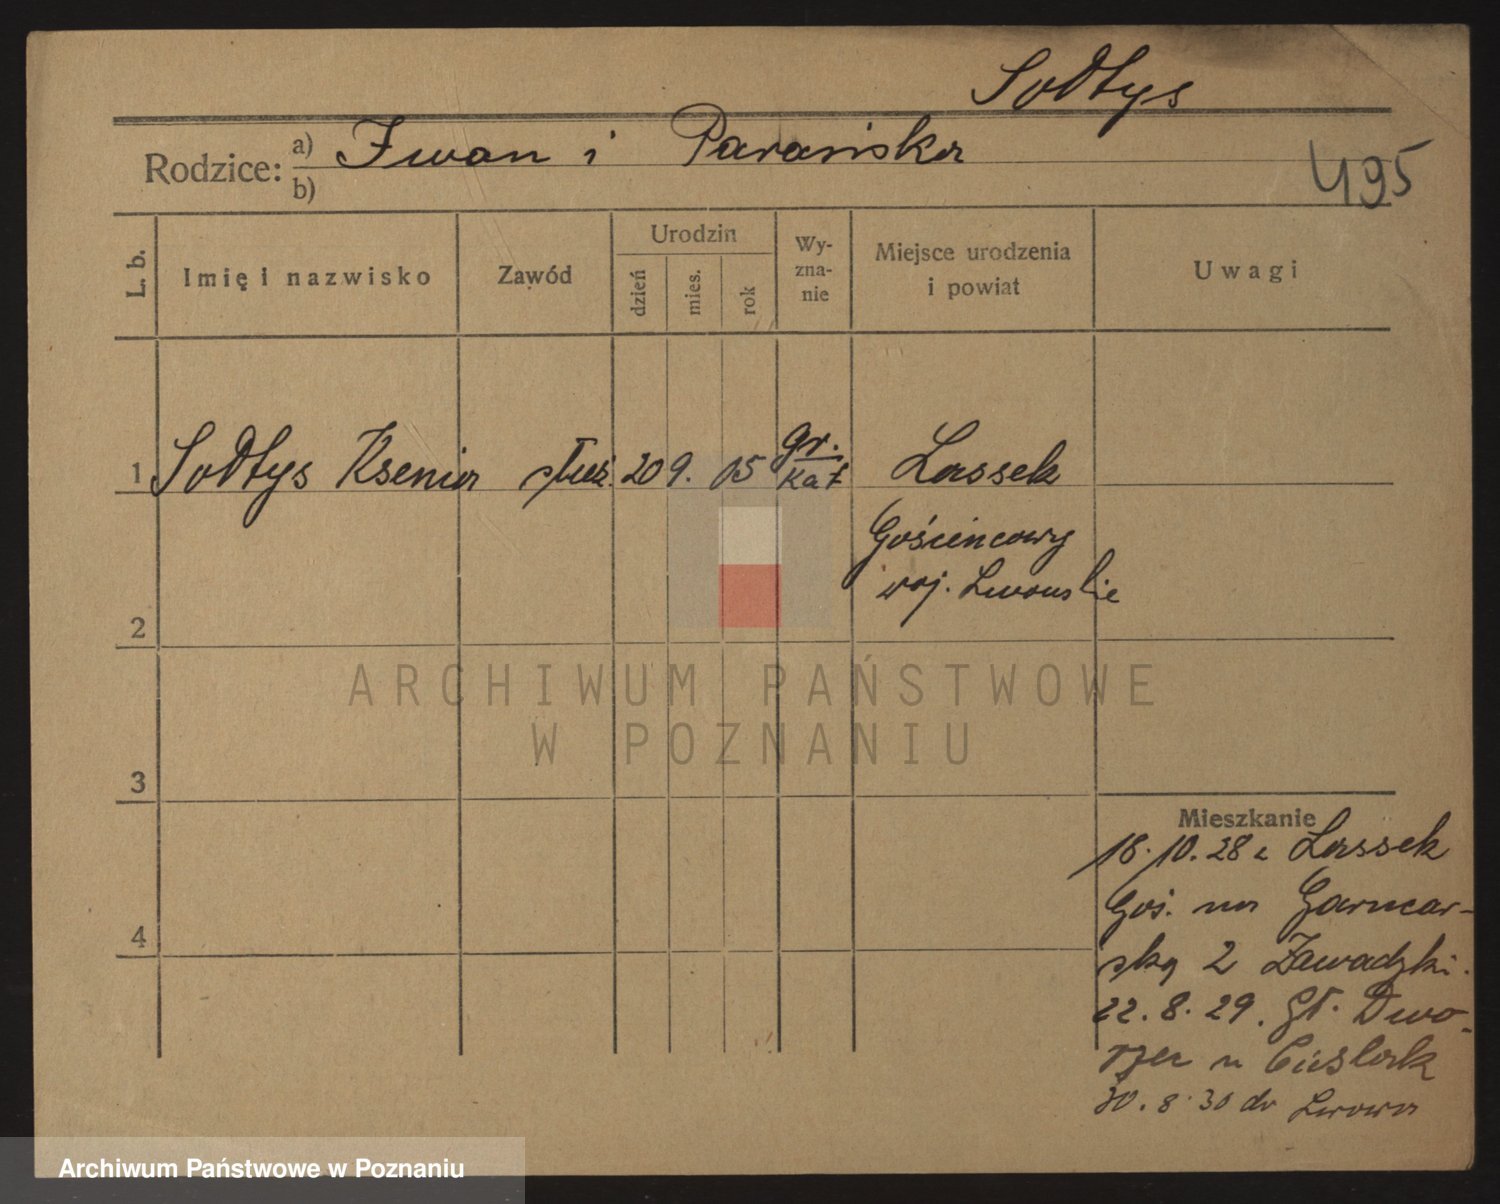 Sołtys
Rodzice: a) Iwan i Parańska
b)
495
L. b.
Imię i nazwisko
Zawód
Urodzin
dzień
mies.
rok
Wy-
zna-
nie
Miejsce urodzenia
i powiat
Uwagi
1 Sołtys Ksenia służ. 20 9. 05 gr. kat Lassek
Gościńcowy
woj. Lwowskie
2
3
4
Mieszkanie
18.10.28 z Lassek
Goś. na Garncar-
ską 2 Zawadzki.
22.8.29. Gł. Dwo-
rzec u Cieślak
30.8.30 do Lwowa
ARCHIWUM PAŃSTWOWE
W POZNANIU
Archiwum Państwowe w Poznaniu